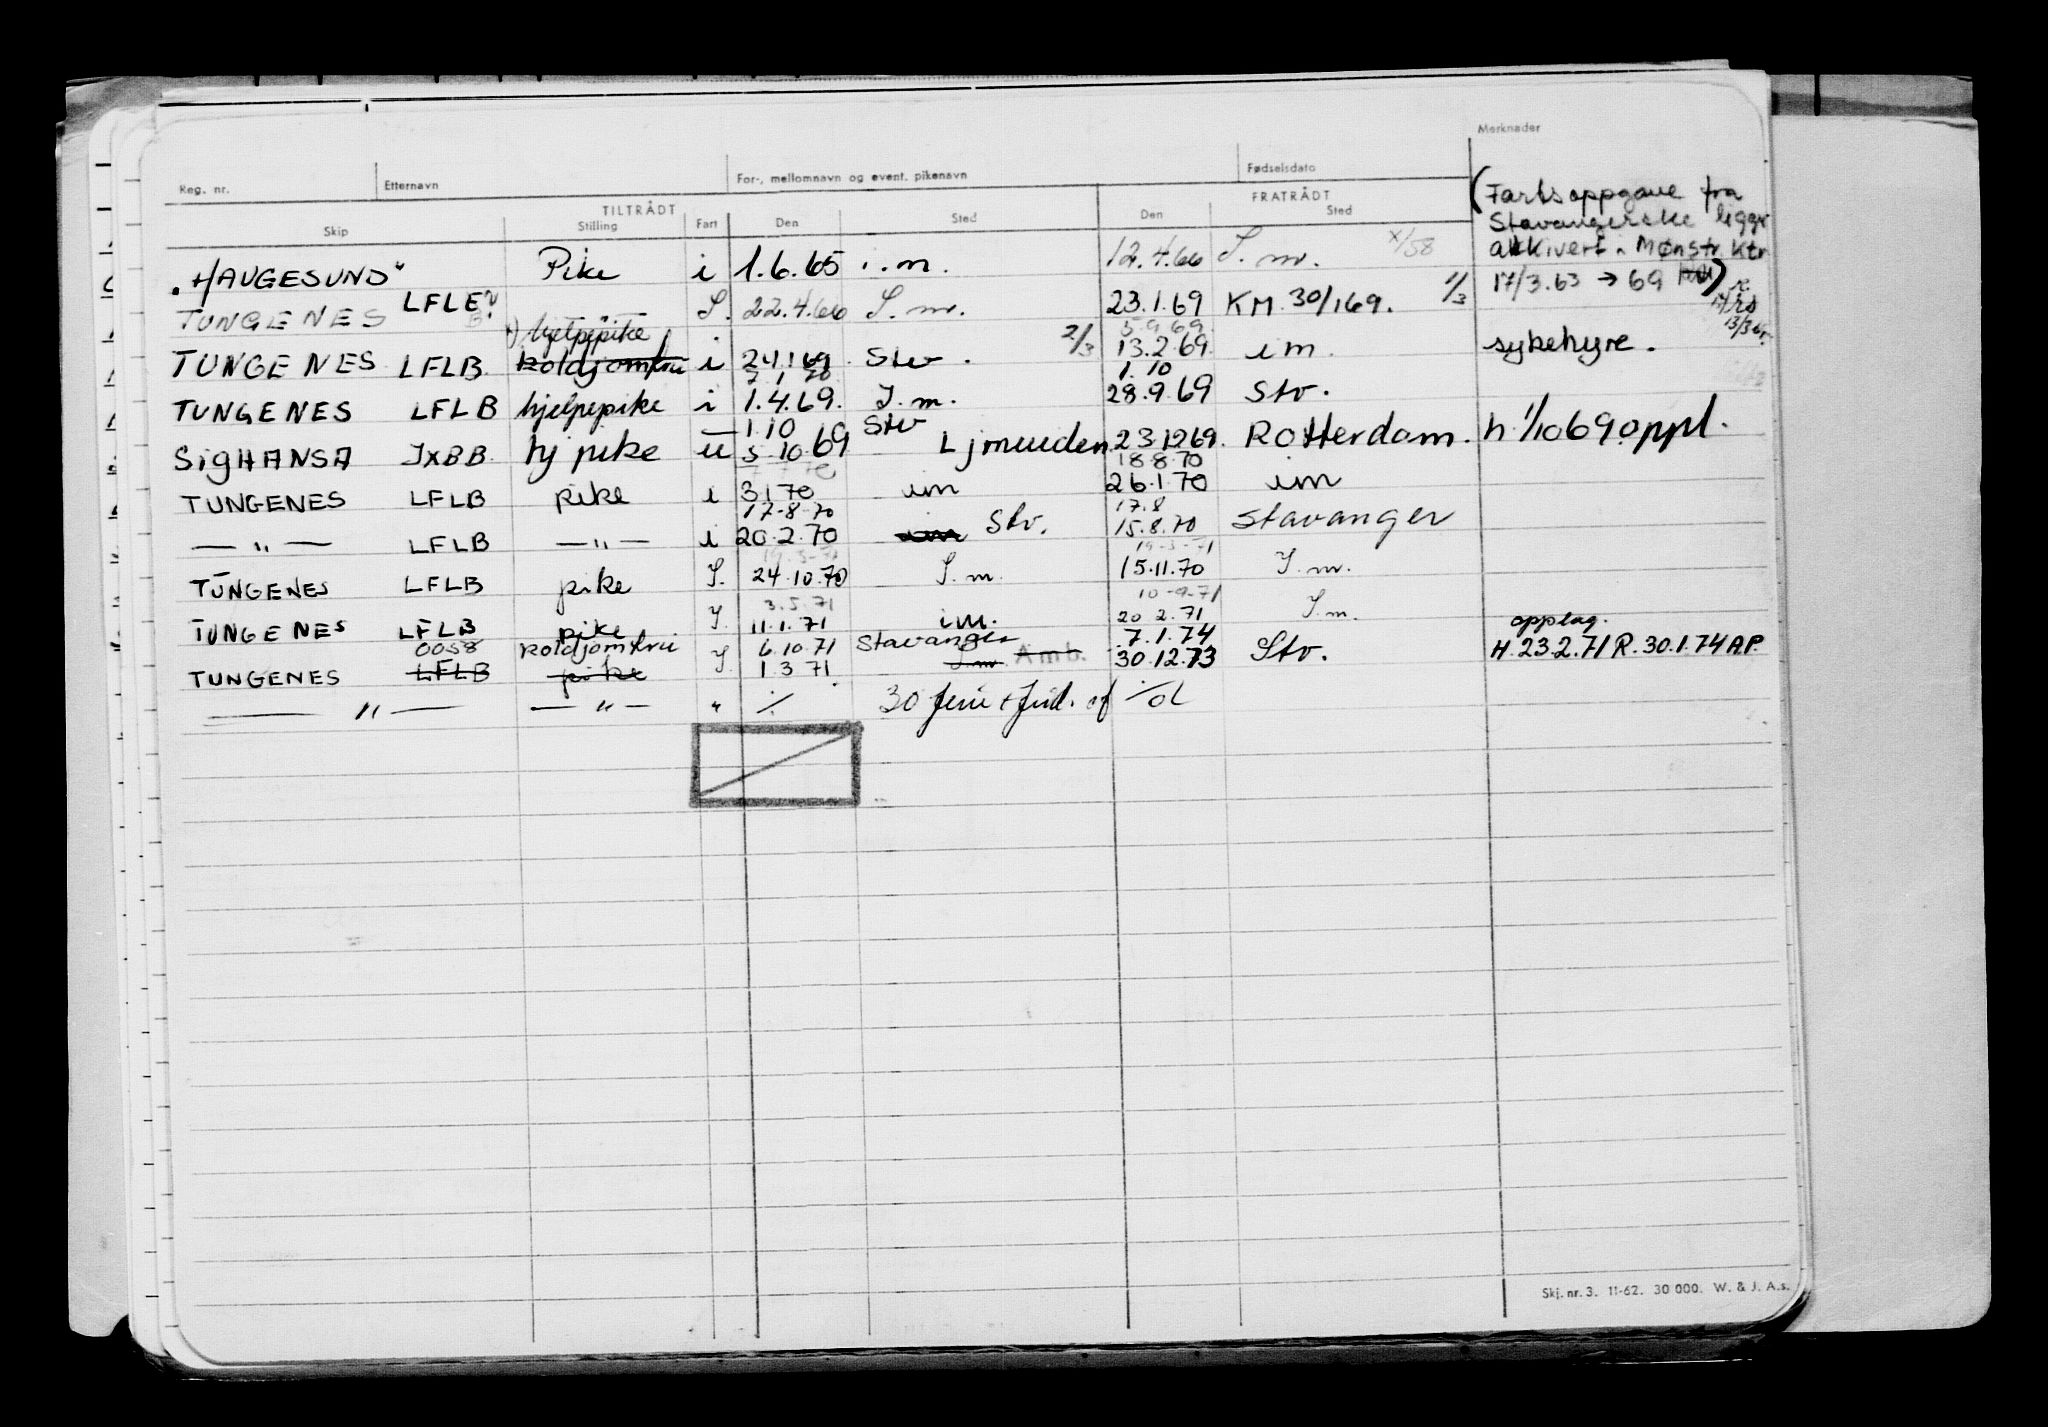 Merknader
Reg. nr. Etternavn For-, mellomnavn og event. pikenavn Fødselsdato
TILTRÅDT FRATRÅDT
Skip Stilling Fart Den Sted Den Sted
(Fartsoppgave fra
Stavangerske ligger
arkivert i Mønstr. Ktr
17/3.63 → 69 )
"HAUGESUND" LFLE Pike i 1.6.65 i.m. 12.4.66 I.m. x/58
TUNGENES — " — I. 22.4.66 I.m. 23.1.69 KM. 30/169. 1/3
x) hjelpepike 2/3 5.9.69
TUNGENES LFLB koldjomfru i 24.1.69 Stv. 13.2.69 im sykehyre.
7.1.70 1.10
TUNGENES LFLB hjelpepike i 1.4.69. I.m. 28.9.69 Stv.
1.10 Stv
SIGHANSA JXBB hj pike u 5.10.69 Ijmuiden 23.12.69. Rotterdam. h. 1/10 69 oppl.
18.8.70
TUNGENES LFLB pike i 3.1.70 im 26.1.70 im
17.8.70 17.8
— " — LFLB — " — i 20.2.70 im Stv. 15.8.70 Stavanger
19.3.71 19.3.71
TUNGENES LFLB pike I. 24.10.70 I.m. 15.11.70 I.m.
3.5.71 10.9.71
TUNGENES LFLB pike I. 11.1.71 im. 20.2.71 I.m.
0058 koldjomfru 6.10.71 Stavanger 7.1.74 opplag.
TUNGENES LFLB pike I. 1.3.71 I.m Amb. 30.12.73 Stv. H. 23.2.71 R. 30.1.74 A.P.
— " — — " — " ./. 30 ferie + frid. af ./.
Skj. nr. 3. 11-62. 30 000. W. & J. A.s.